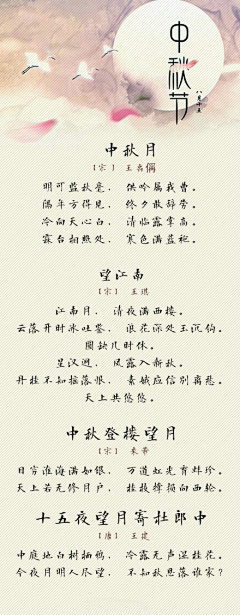 中秋节
八月十五
中秋月
【宋】 王禹偁
明可监秋毫， 供吟属我曹。
隔年方得见， 终夕敢辞劳。
冷向天心白， 清临露掌高。
霜台相照处， 寒色满蓝袍。
望江南
【宋】 王琪
江南月， 清夜满西楼。
云落开时冰吐鉴， 浪花深处玉沉钩。
圆缺几时休。
星汉迥， 风露入新秋。
丹桂不知摇落恨， 素娥应信别离愁。
天上共悠悠。
中秋登楼望月
【宋】 米芾
目穷淮海满如银， 万道虹光育蚌珍。
天上若无修月户， 桂枝撑损向西轮。
十五夜望月寄杜郎中
【唐】 王建
中庭地白树栖鸦， 冷露无声湿桂花。
今夜月明人尽望， 不知秋思落谁家？